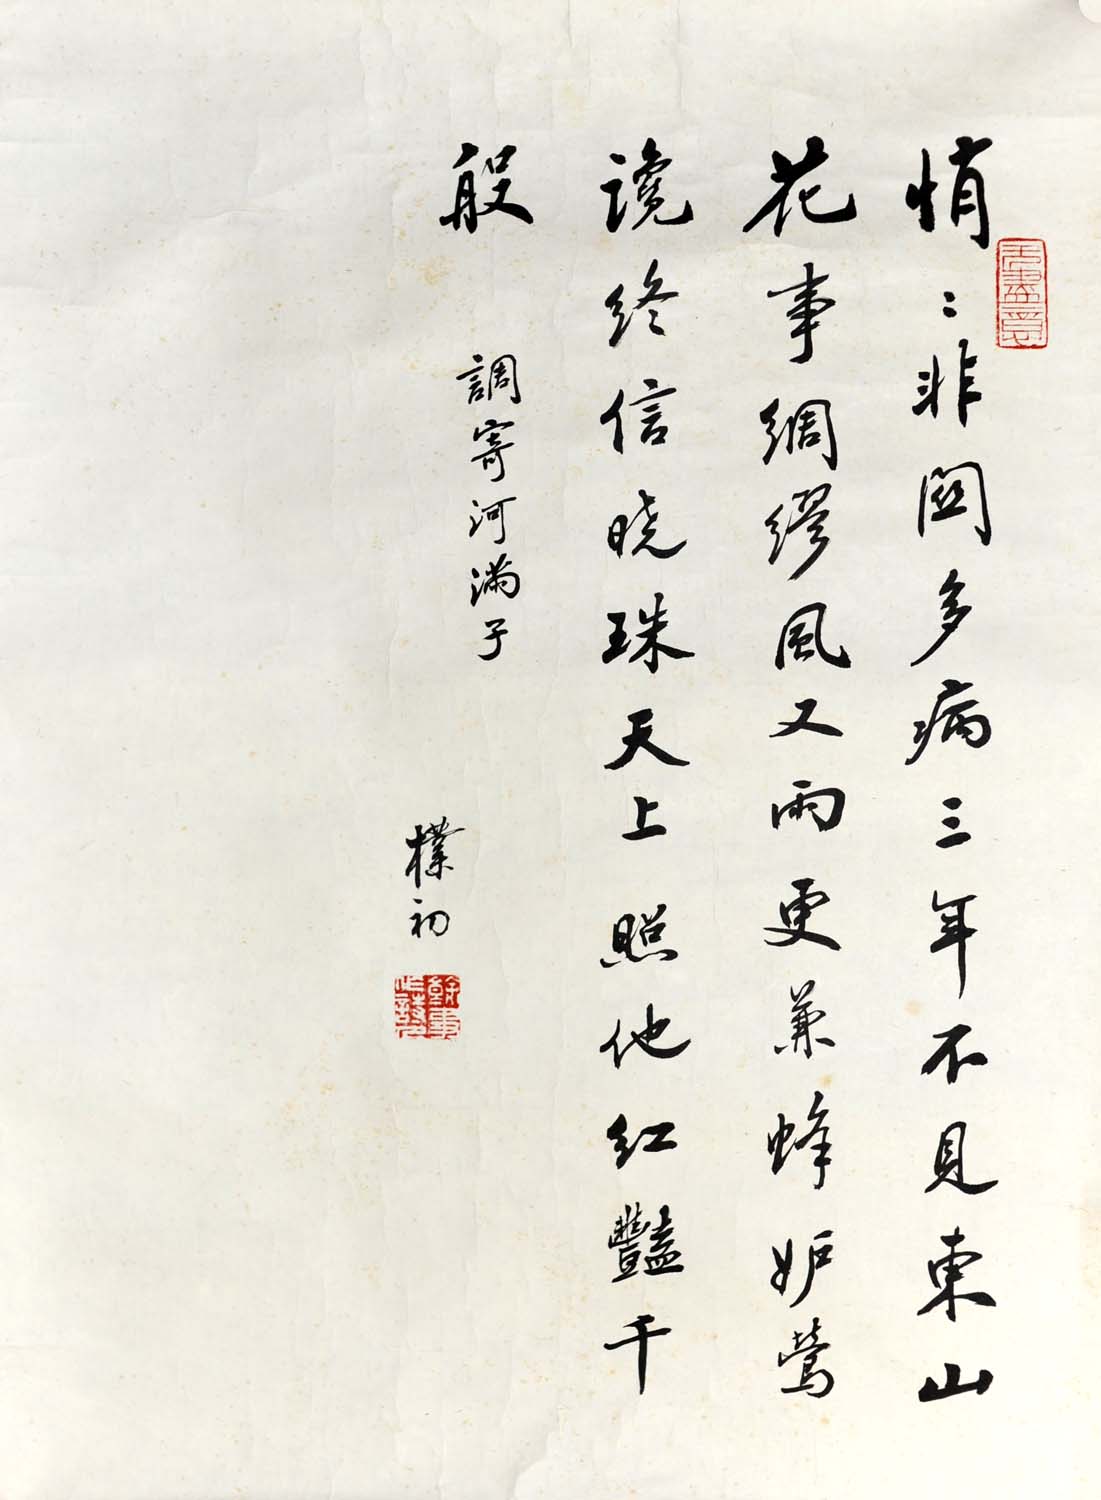 悄〻非關多病三年不見東山
花事綢繆風又雨更兼蜂妒鶯
讒終信晓珠天上照他紅豔千
般
調寄河滿子
樸初
无盡意